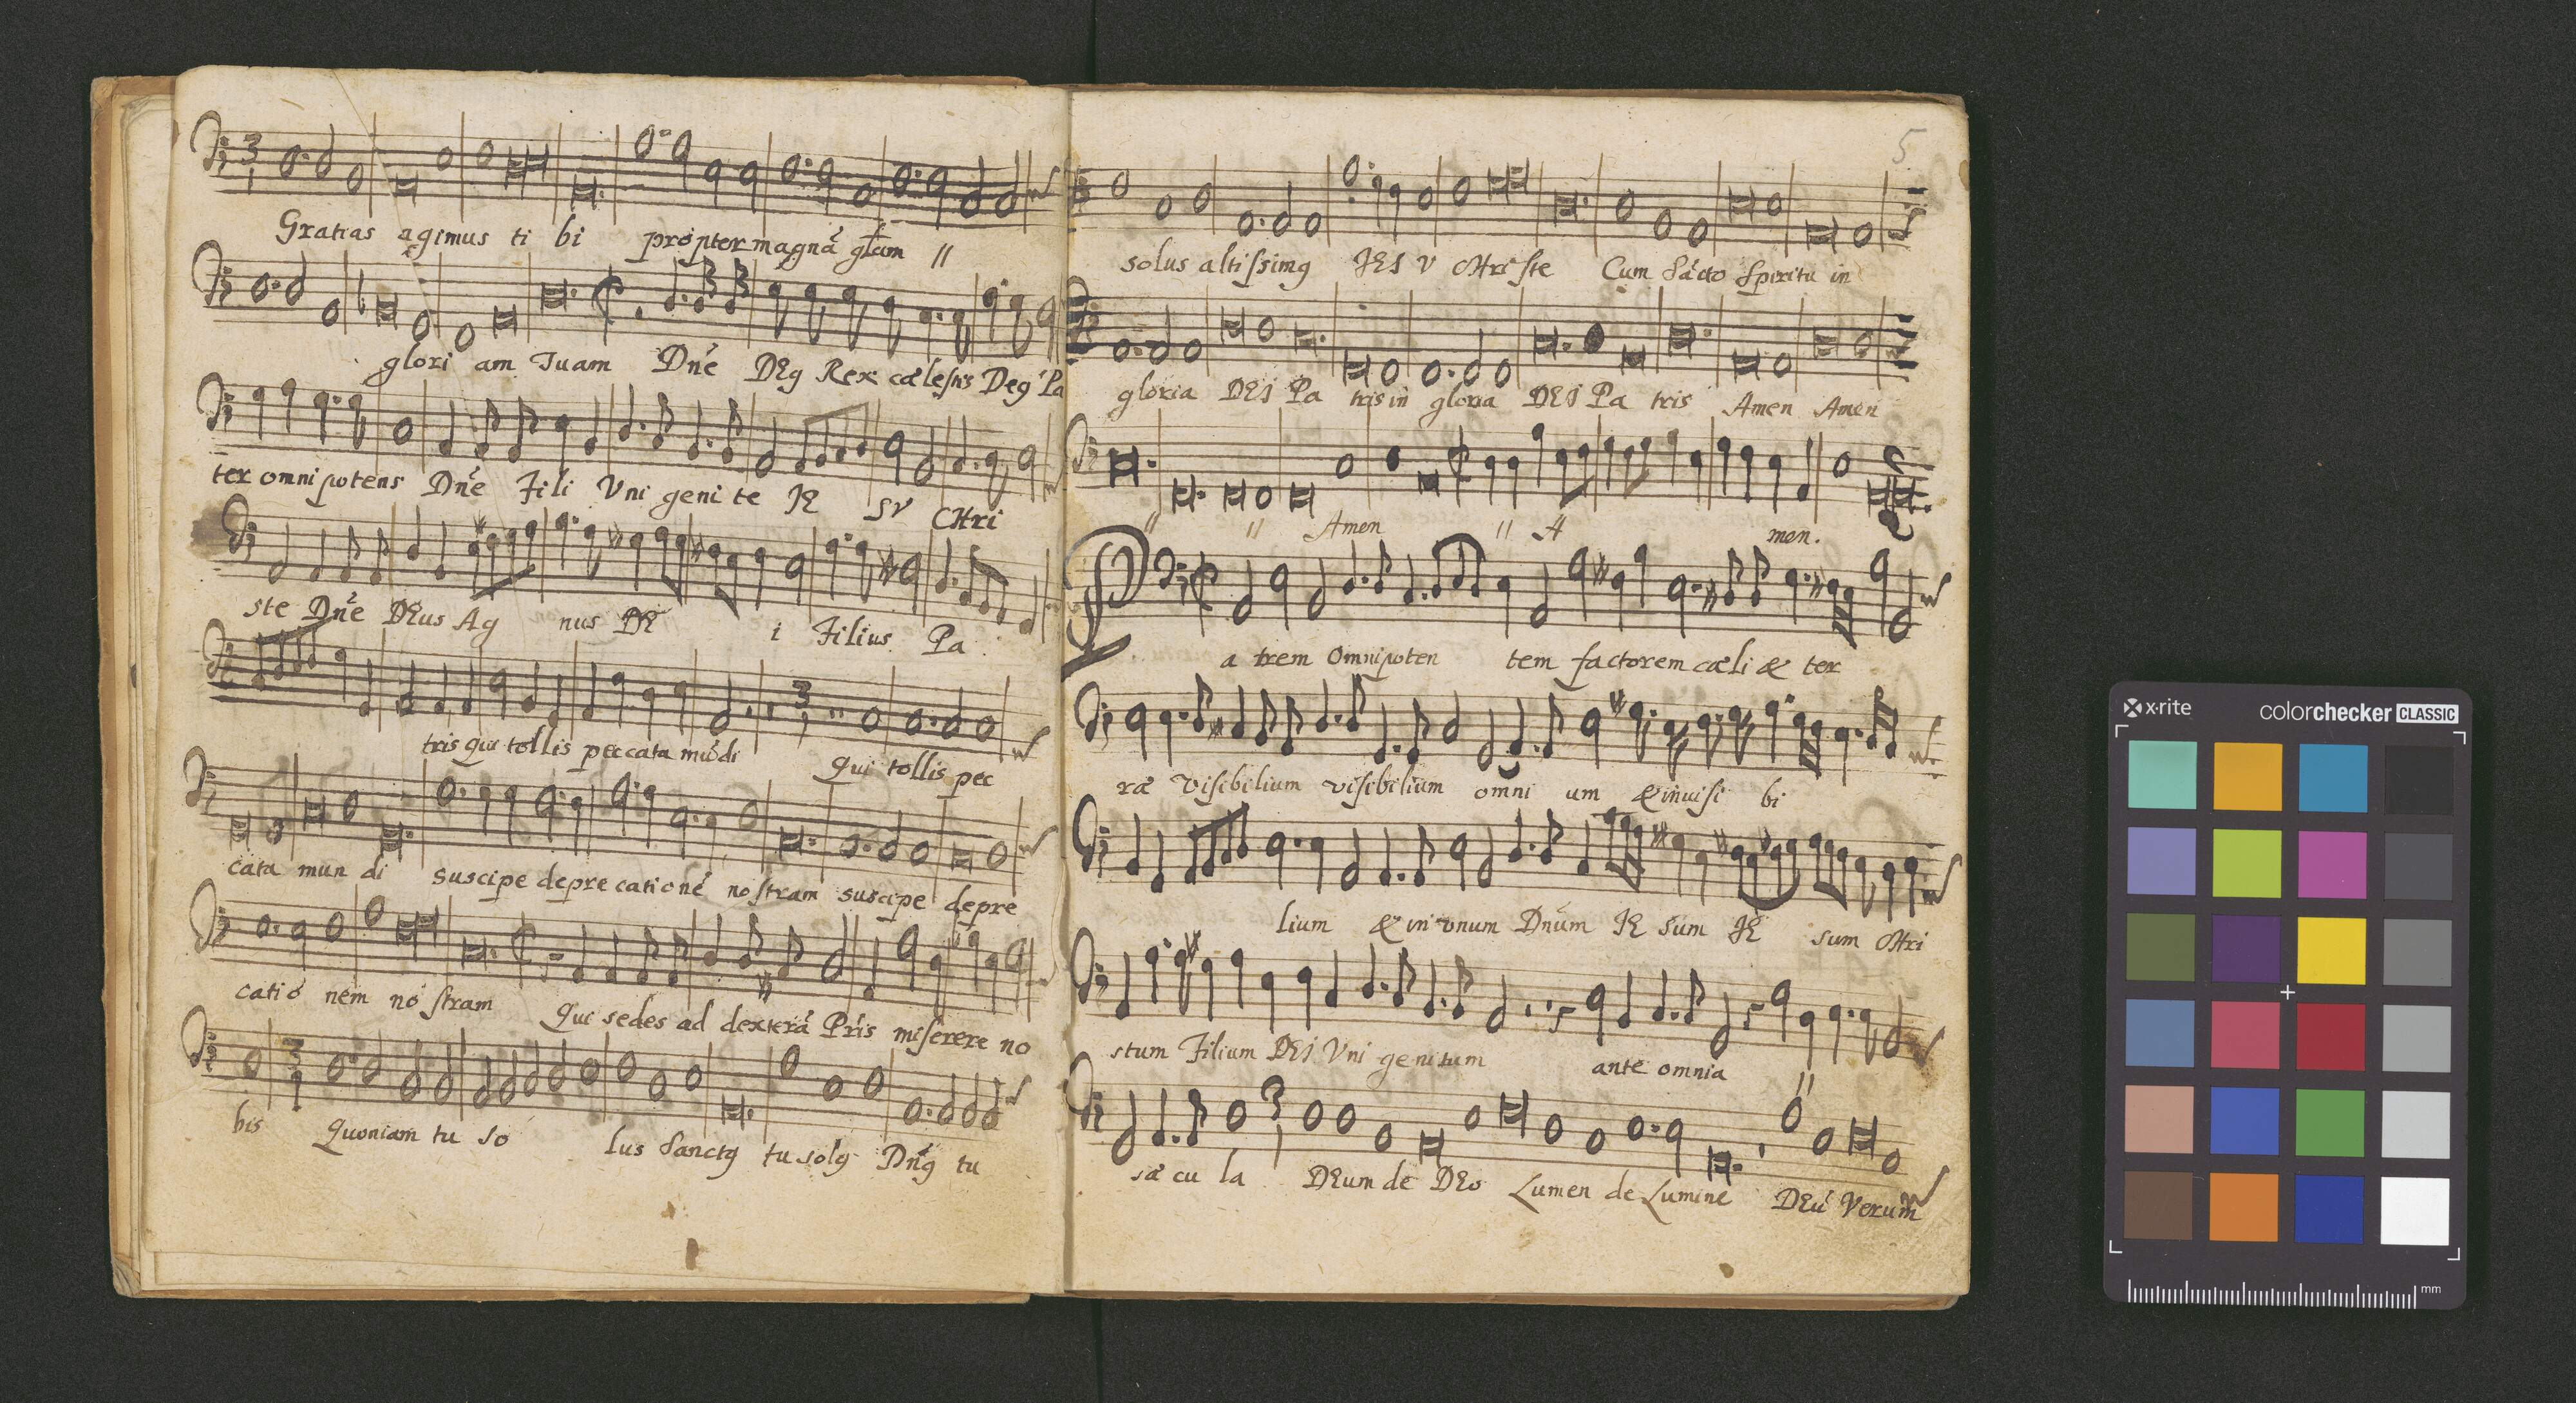 Gratias agimus ti bi propter magnā glam //
glori am Tuam Dnē DEꝰ Rex cælestis Deꝰ Pa
ter omnipotens Dnē Fili Vni geni te JE SV CHri
ste Dnē DEus Ag nus DE i Filius Pa
tris qui tollis peccata mūdi Qui tollis pec
cata mun di suscipe depre cationē nostram suscipe depre
catio nem no stram Qui sedes ad dexterā Pris miserere no
bis Quoniam tu so lus Sanctꝰ tu solꝰ Dnꝰ tu
5
solus altissimꝰ JES V CHriste Cum Sācto Spiritu in
gloria DEI Pa tris in gloria DEI Pa tris Amen Amen
// // Amen // A men.
P a trem Omnipoten tem factorem cæli & ter
ræ visibilium visibilium omni um & invisi bi
lium & in vnum Dnum JE sum JE sum CHri
stum Filium DEI Vni genitum ante omnia //
sæ cu la DEum de DEo Lumen de Lumine DEū Verum
x-rite colorchecker CLASSIC
mm